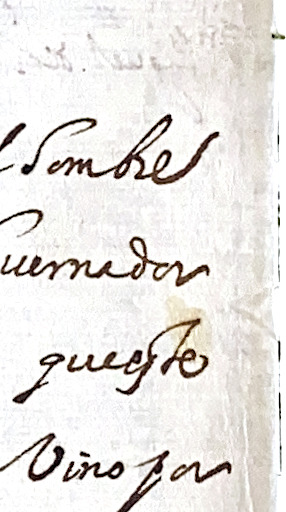 Hombres
uernador
queeste
Vino por